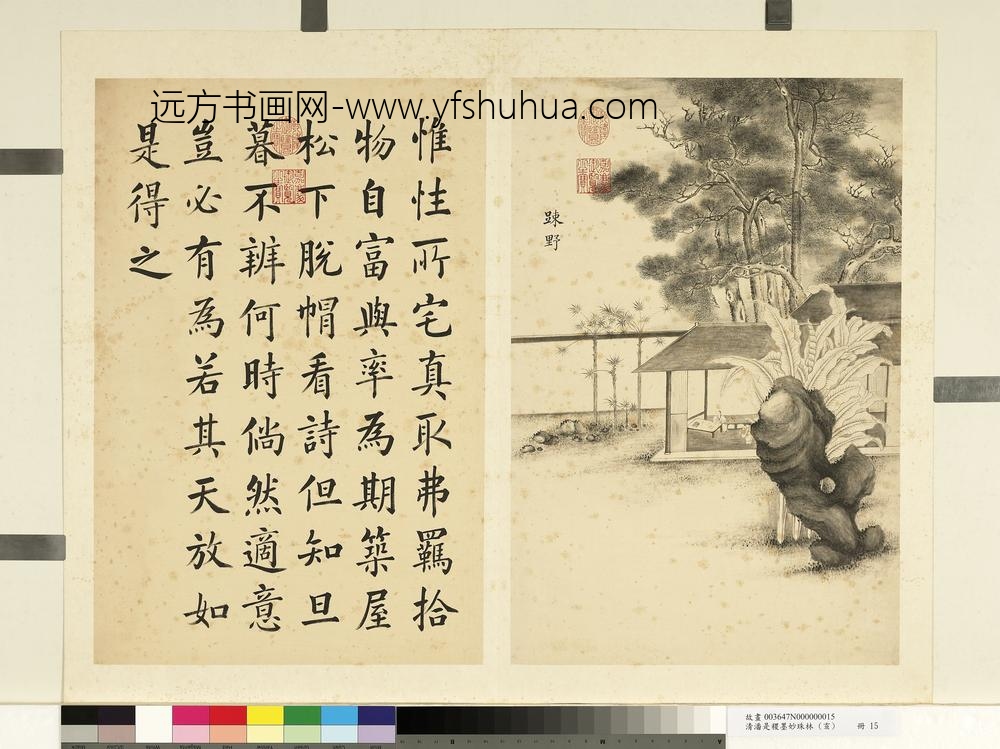 远方书画网-www.yfshuhua.com
踈野
惟性所宅真取弗羈拾
物自富與率為期築屋
松下脫帽看詩但知旦
暮不辨何時倘然適意
豈必有為若其天放如
是得之
故畫 003647N000000015
清潘是稷墨妙珠林（玄） 冊 15